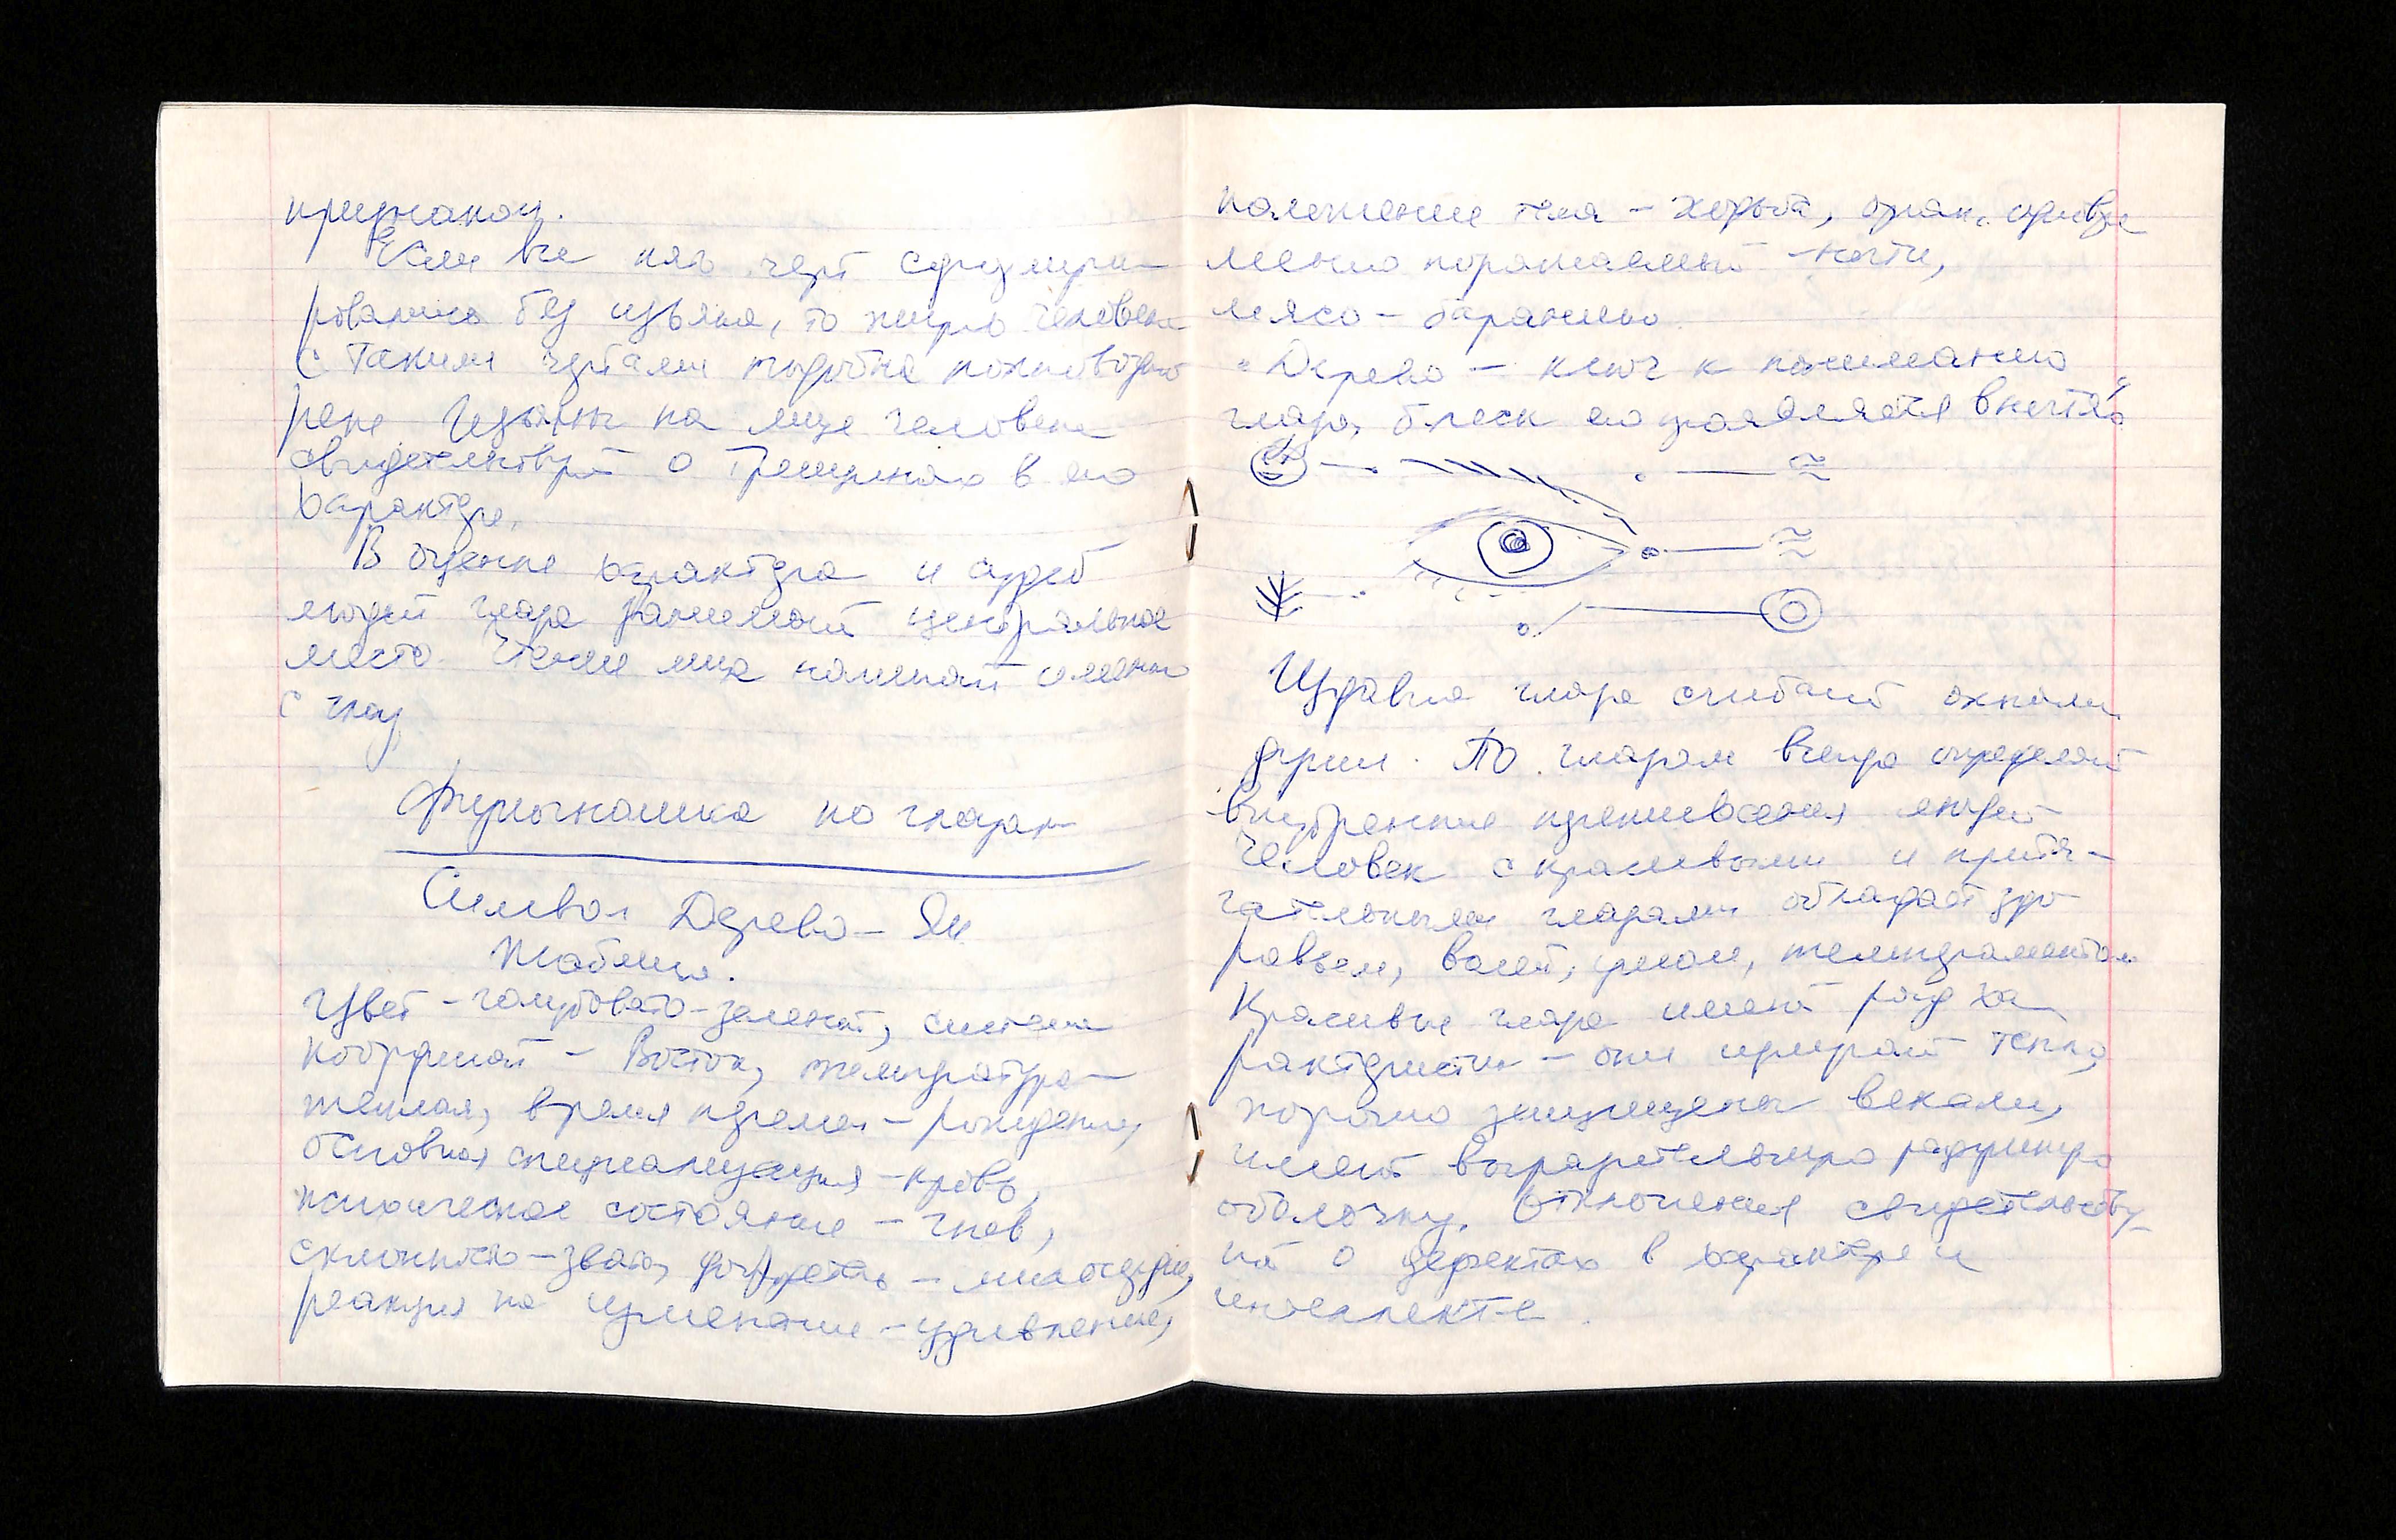 признаком.
Если все пять черт сформи-
ровались без изъяна, то жизнь человека
с такими чертами подобна полноводной
реке. Изъяны на лице человека
свидетельствуют о трещинах в его
характере.
В оценке характера и судеб
людей глаза занимают центральное
место. Чтение лица начинают именно
с глаз
Физиогномика по глазам
Символ Дерево – Ян
Таблица.
Цвет – голубовато-зеленый, система
координат – Восток, температура –
теплая, время – рождение,
основная специализация – кровь,
психическое состояние – гнев,
склонность – звать, добродетель – милосердие,
реакция на изменение – удивление,
положение тела – ходьба, орган,
поражаемый – ногти,
мясо – баранина.
"Дерево – ключ к пониманию
глаз, блеск его проявляется в ногтях"
Издавна глаза считают окнами
души. По глазам всегда определяют
внутренние людей
Человек с красивыми и притя-
гательными глазами обладает здо
ровьем, волей, умом, темпераментом
Красивые глаза имеют ряд ха
рактеристик – они излучают тепло,
хорошо защищены веками,
имеют выразительную радужную
оболочку. Отклонения свидетельству
ют о дефектах в характере и
интеллекте.